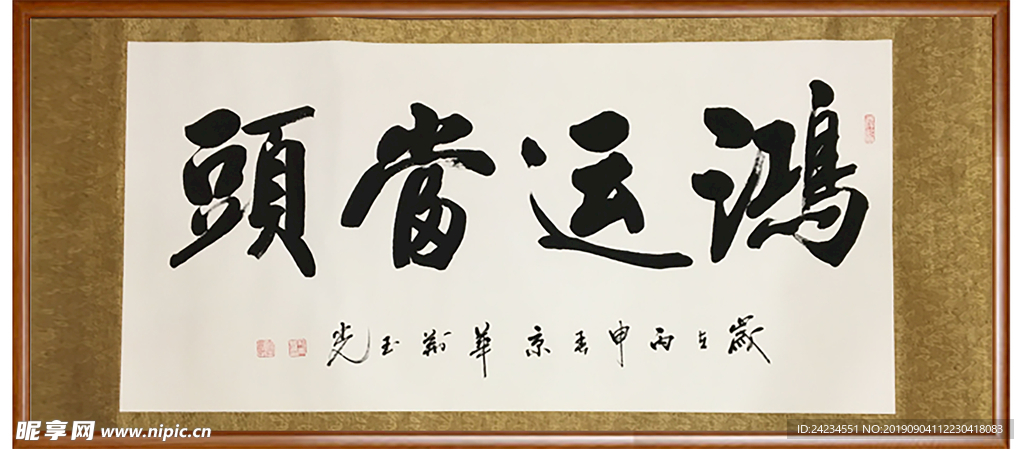 鴻运當頭
歲在丙申春京華玉光
昵享网 www.nipic.cn
ID:24234551 NO:20190904112230418083